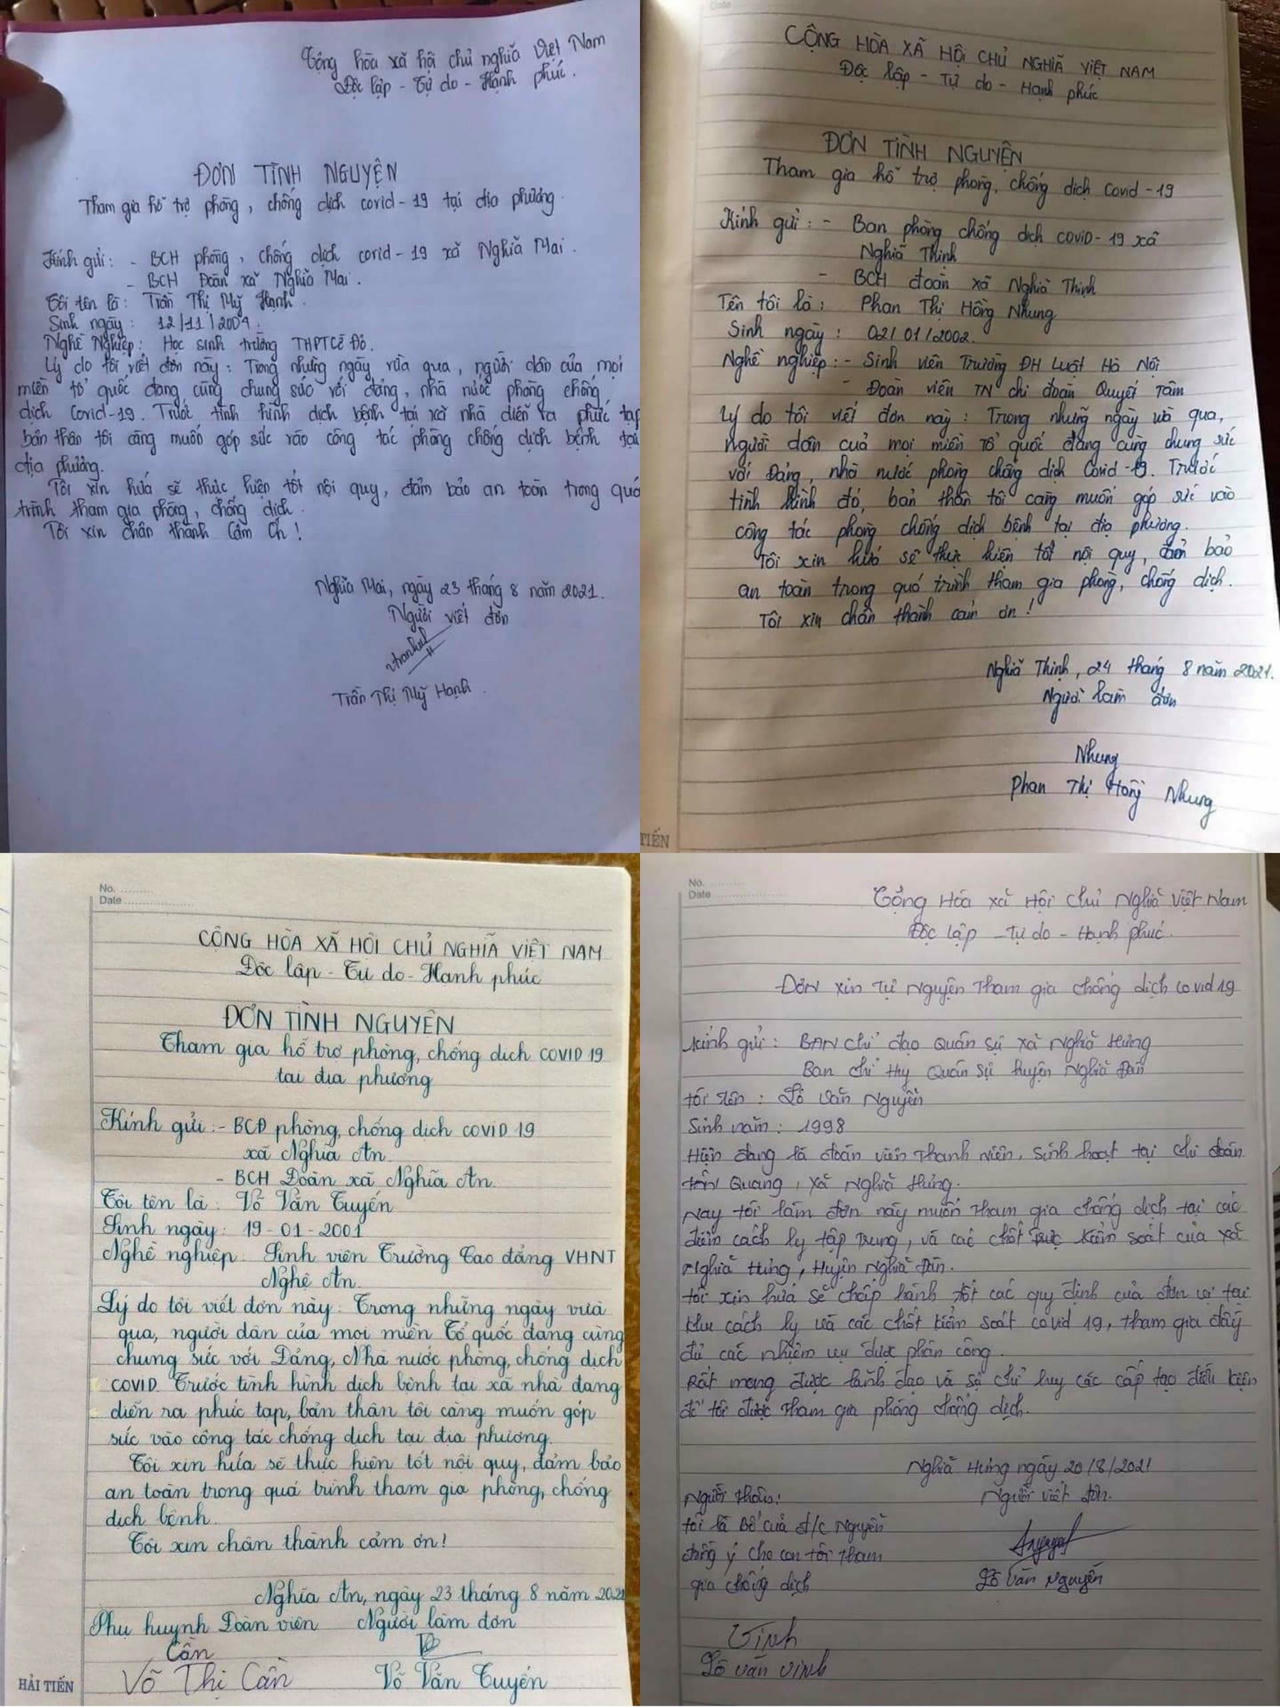 Cộng hòa xã hội chủ nghĩa Việt Nam
Độc lập - Tự do - Hạnh phúc.
ĐƠN TÌNH NGUYỆN
Tham gia hỗ trợ phòng, chống dịch covid-19 tại địa phương.
Kính gửi: - BCH phòng, chống dịch covid-19 xã Nghĩa Mai.
- BCH Đoàn xã Nghĩa Mai.
Tôi tên là: Trần Thị Mỹ Hạnh.
Sinh ngày: 12/11/2004.
Nghề Nghiệp: Học sinh trường THPT Cờ Đỏ.
Lý do tôi viết đơn này: Trong những ngày vừa qua, người dân của mọi
miền tổ quốc đang cùng chung sức với đảng, nhà nước phòng chống
dịch Covid-19. Trước tình hình dịch bệnh tại xã nhà diễn ra phức tạp
bản thân tôi càng muốn góp sức vào công tác phòng chống dịch bệnh tại
địa phương.
Tôi xin hứa sẽ thực hiện tốt nội quy, đảm bảo an toàn trong quá
trình tham gia phòng, chống dịch.
Tôi xin chân thành Cảm Ơn!
Nghĩa Mai, ngày 23 tháng 8 năm 2021.
Người viết đơn
Trần Thị Mỹ Hạnh.
Date
CỘNG HÒA XÃ HỘI CHỦ NGHĨA VIỆT NAM
Độc lập - Tự do - Hạnh phúc
ĐƠN TÌNH NGUYỆN
Tham gia hỗ trợ phòng, chống dịch Covid-19
Kính gửi: - Ban phòng chống dịch COVID-19 xã
Nghĩa Thịnh
- BCH đoàn xã Nghĩa Thịnh
Tên tôi là: Phan Thị Hồng Nhung
Sinh ngày: 02/01/2002.
Nghề nghiệp: - Sinh viên Trường ĐH Luật Hà Nội
- Đoàn viên TN chi đoàn Quyết Tâm
Lý do tôi viết đơn này: Trong những ngày vừa qua,
người dân của mọi miền Tổ quốc đang cùng chung sức
với Đảng, nhà nước phòng chống dịch Covid-19. Trước
tình hình đó, bản thân tôi càng muốn góp sức vào
công tác phòng chống dịch bệnh tại địa phương.
Tôi xin hứa sẽ thực hiện tốt nội quy, đảm bảo
an toàn trong quá trình tham gia phòng, chống dịch.
Tôi xin chân thành cảm ơn!
Nghĩa Thịnh, 24 tháng 8 năm 2021.
Người làm đơn
Nhung
Phan Thị Hồng Nhung
TIẾN
No.
Date
CỘNG HÒA XÃ HỘI CHỦ NGHĨA VIỆT NAM
Độc lập - Tự do - Hạnh phúc
ĐƠN TÌNH NGUYỆN
Tham gia hỗ trợ phòng, chống dịch COVID 19
tại địa phương
Kính gửi: - BCĐ phòng, chống dịch COVID 19
xã Nghĩa An.
- BCH Đoàn xã Nghĩa An.
Tôi tên là: Võ Văn Tuyến
Sinh ngày: 19-01-2001
Nghề nghiệp: Sinh viên Trường Cao đẳng VHNT
Nghệ An.
Lý do tôi viết đơn này: Trong những ngày vừa
qua, người dân của mọi miền Tổ quốc đang cùng
chung sức với Đảng, Nhà nước phòng, chống dịch
COVID. Trước tình hình dịch bệnh tại xã nhà đang
diễn ra phức tạp, bản thân tôi càng muốn góp
sức vào công tác chống dịch tại địa phương.
Tôi xin hứa sẽ thực hiện tốt nội quy, đảm bảo
an toàn trong quá trình tham gia phòng, chống
dịch bệnh.
Tôi xin chân thành cảm ơn!
Nghĩa An, ngày 23 tháng 8 năm 2021
Phụ huynh Đoàn viên Người làm đơn
Cần
Võ Thị Cần Võ Văn Tuyến
HẢI TIẾN
No.
Date
Cộng Hòa xã Hội Chủ Nghĩa Việt Nam
Độc lập - Tự do - Hạnh phúc.
Đơn xin Tự Nguyện Tham gia chống dịch covid 19
kính gửi: BAN chỉ đạo Quân sự xã Nghĩa Hưng
Ban chỉ Huy Quân sự huyện Nghĩa Đàn
tôi tên: Lô Văn Nguyên
Sinh năm: 1998
Hiện đang là đoàn viên Thanh niên, sinh hoạt tại chi đoàn
tân Quang, xã Nghĩa Hưng.
Nay tôi làm đơn này muốn Tham gia chống dịch tại các
điểm cách ly tập Trung, và các chốt trực kiểm soát của xã
Nghĩa Hưng, Huyện Nghĩa Đàn.
tôi xin hứa sẽ chấp hành tốt các quy định của đơn vị tại
khu cách ly và các chốt kiểm soát covid 19, tham gia đầy
đủ các nhiệm vụ được phân công.
Rất mong được lãnh đạo và sự chỉ huy các cấp tạo điều kiện
để tôi được Tham gia phòng chống dịch.
Nghĩa Hưng ngày 20/8/2021
Người thân: Người viết đơn.
tôi là Bố của đ/c Nguyên
đồng ý cho con tôi Tham
gia chống dịch
Lô Văn Nguyên
Vinh
Lô văn vinh